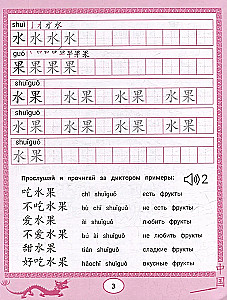 shuǐ
水 水 水 水
guǒ
果 果 果 果
shuǐguǒ
水 果 水 果 水 果 水 果
shuǐguǒ
水 果 水 果 水 果 水 果
shuǐguǒ
水 果
Прослушай и прочитай за диктором примеры: 2
吃水果 chī shuǐguǒ есть фрукты
不吃水果 bù chī shuǐguǒ не есть фрукты
爱水果 ài shuǐguǒ любить фрукты
不爱水果 bú ài shuǐguǒ не любить фрукты
甜水果 tián shuǐguǒ сладкие фрукты
好吃水果 hǎochī shuǐguǒ вкусные фрукты
中国
3